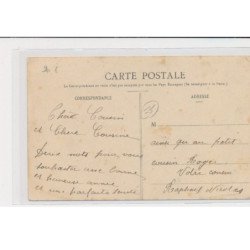 CARTE POSTALE
CORRESPONDANCE
ADRESSE
Cher Cousin
et Chère Cousine
Deux mots pour vous
souhaiter une bonne
et heureuse année
et une parfaite santé
ainsi qu'au petit
cousin Roger
Votre cousin
Raphael Nicolas